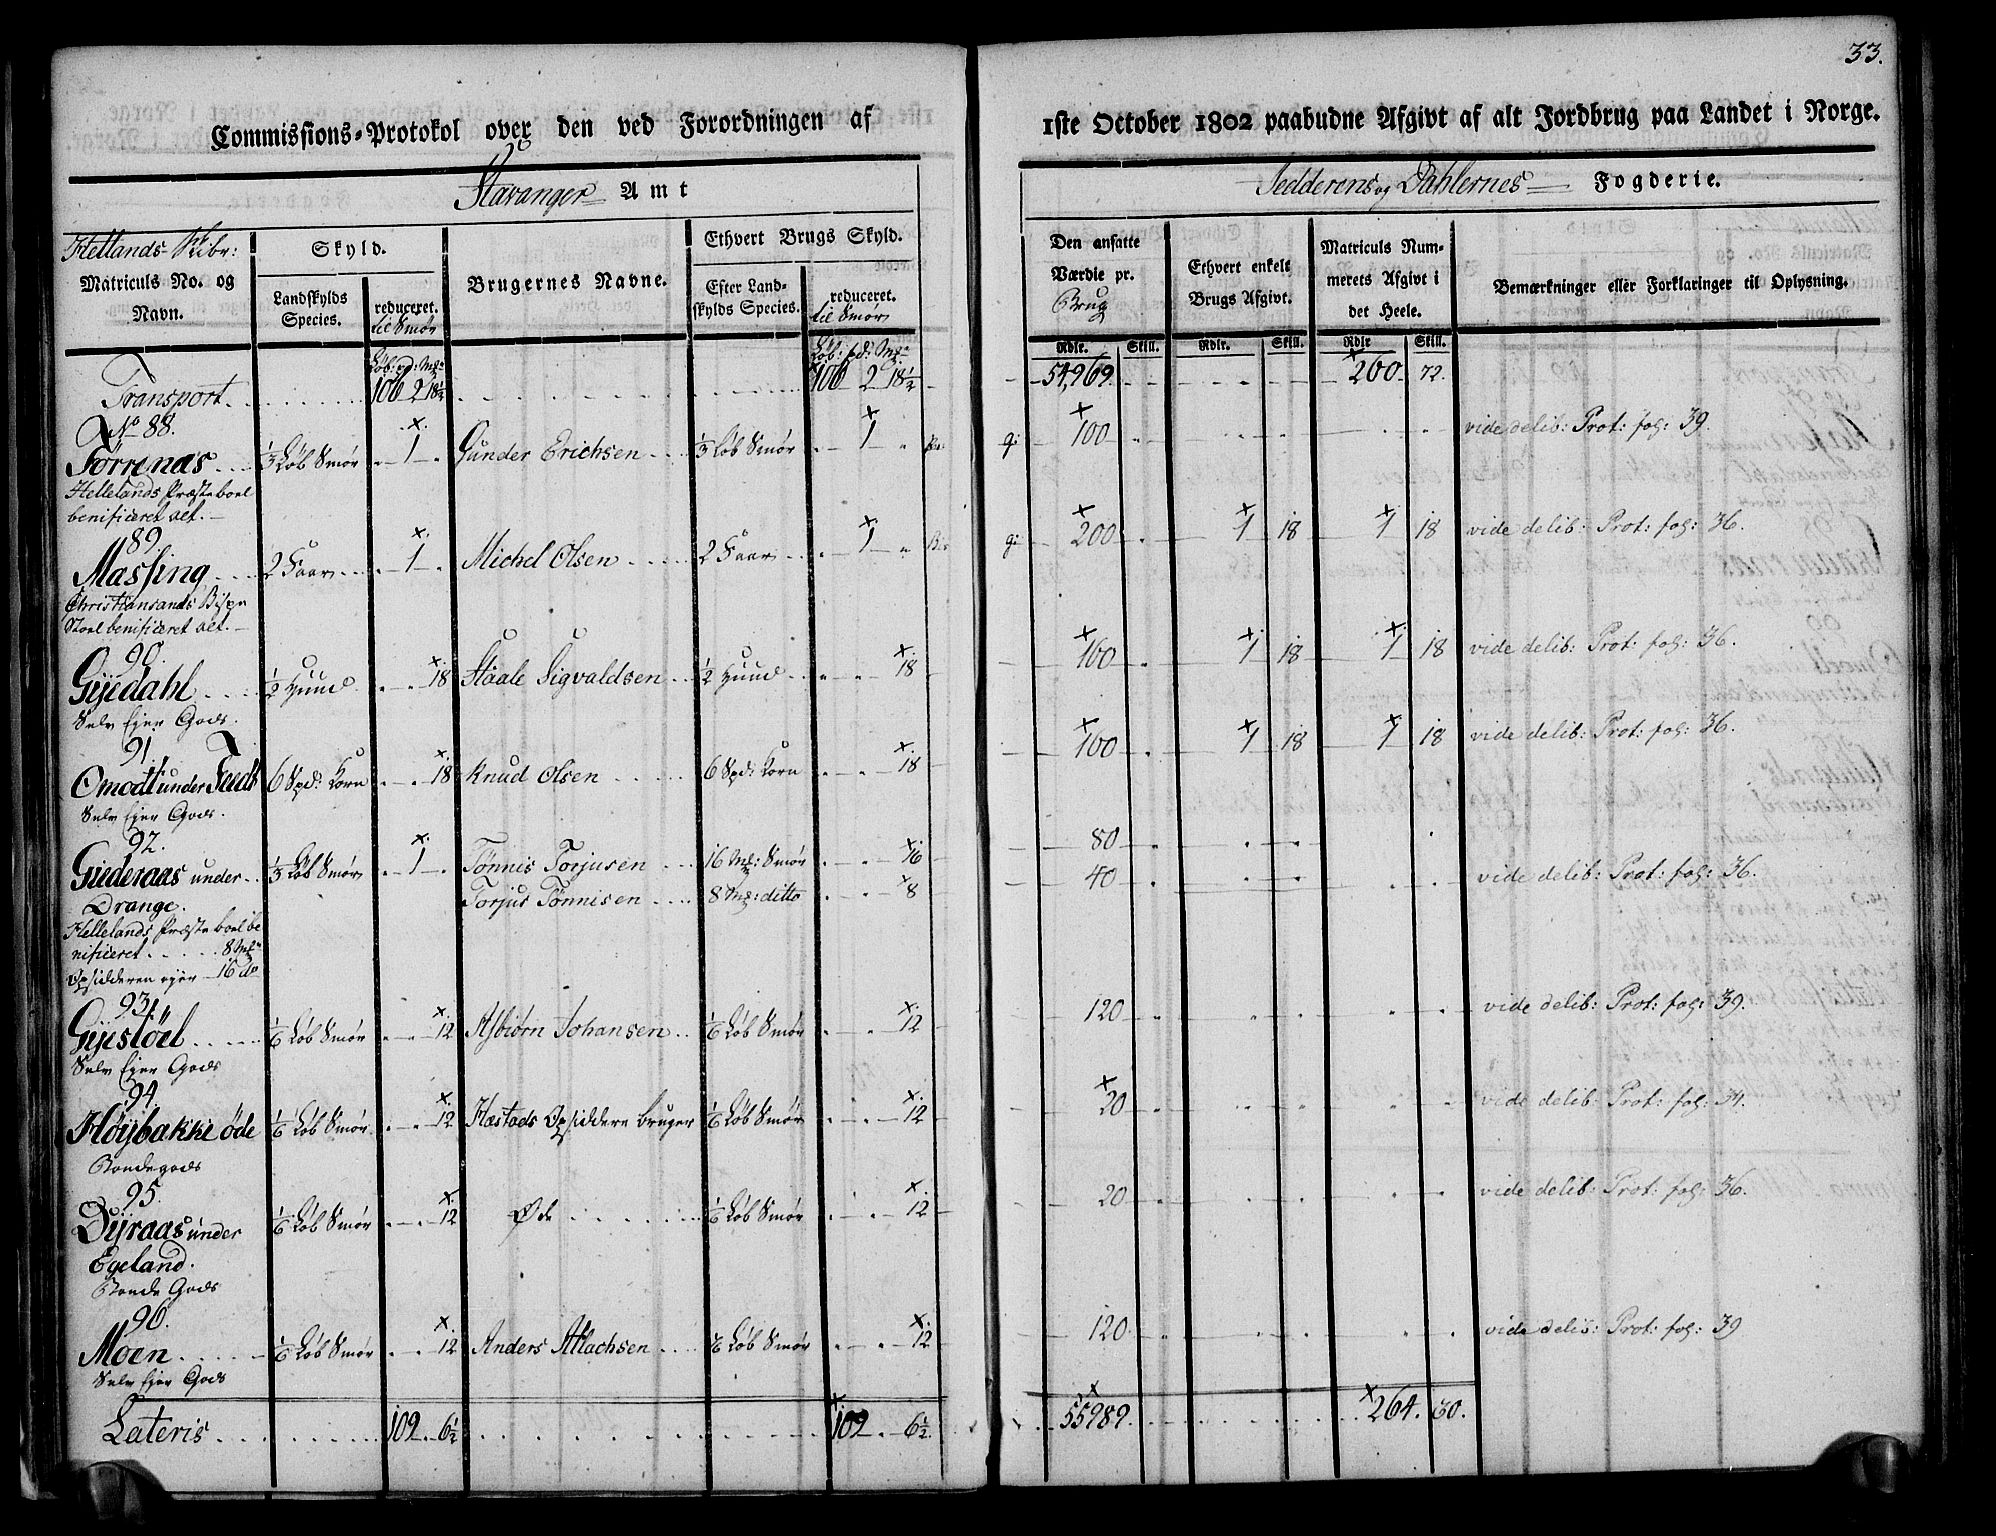 33.
Commissions-Protokol over den ved Forordningen af 1ste October 1802 paabudne Afgivt af alt Jordbrug paa Landet i Norge.
Stavanger Amt Jedderens og Dahlernes Fogderie.
Hellands Skibr:
Matriculs No. og Navn.
Skyld.
Landskylds Species.
reduceret. til Smør
Brugernes Navne.
Ethvert Brugs Skyld.
Efter Landskylds Species.
reduceret. til Smør
Den ansatte Værdie pr. Brug
Ethvert enkelt Brugs Afgivt.
Matriculs Nummerets Afgivt i det Heele.
Bemærkninger eller Forklaringer til Oplysning.
Løb: pd: Mk Løb: pd: Mk Rdlr. Skill. Rdlr. Skill. Rdlr Skill.
Transport 106 2 18½ 106 2 18½ 54,969. 260. 72.
No 88.
Tørrenæs 1/3 Løb Smør 1 Gunder Erichsen 1/3 Løb Smør 1 100 vide delib: Prot: fol: 39.
Hellelands Præsteboel
benificeret alt.
89.
Massing 2 Faar 1 Michel Olsen 2 Faar 1 200 1 18 1 18 vide delib: Prot: fol: 36.
Christiansands Bispe
Stoel benificeret alt.
90.
Gyedahl ½ Huud 18 Staale Sigvaldsen ½ Huud 18 160 1 18 1 18 vide delib: Prot: fol: 36.
Selv Ejer Gods.
91.
Omodt under Tuedt 6 Spd: Korn 18 Knud Olsen 6 Spd: Korn 18 160 1 18 1 18 vide delib: Prot: fol: 36.
Selv Ejer Gods.
92.
Giederaas under 1/3 Løb Smør 1 Tønnis Torjusen 16 Mk: Smør 16 80
Drange. Torjus Tønnisen 8 Mk: ditto 8 40 vide delib: Prot: fol: 36.
Hellelands Præsteboel be
nificeret 8 Mk
Opsidderen ejer 16 do
93.
Gyesløel 1/6 Løb Smør 12 Asbiørn Johansen 1/6 Løb Smør 12 120 vide delib: Prot: fol: 39.
Selv Ejer Gods
94.
Høybakke öde 1/6 Løb Smør 12 Hæstads Opsiddere bruger 1/6 Løb Smør 12 20 vide delib: Prot: fol: 34.
Bondegods
95.
Dyraas under 1/6 Løb Smør 12 Øde 1/6 Løb Smør 12 20 vide delib: Prot: fol: 36.
Egeland.
Bonde Gods
96.
Moen 1/6 Løb Smør 12 Anders Atlachsen 1/6 Løb Smør 12 120 vide delib: Prot: fol: 39
Selv Ejer Gods
Lateris 109 6½ 109 6½ 55989. 264. 30.